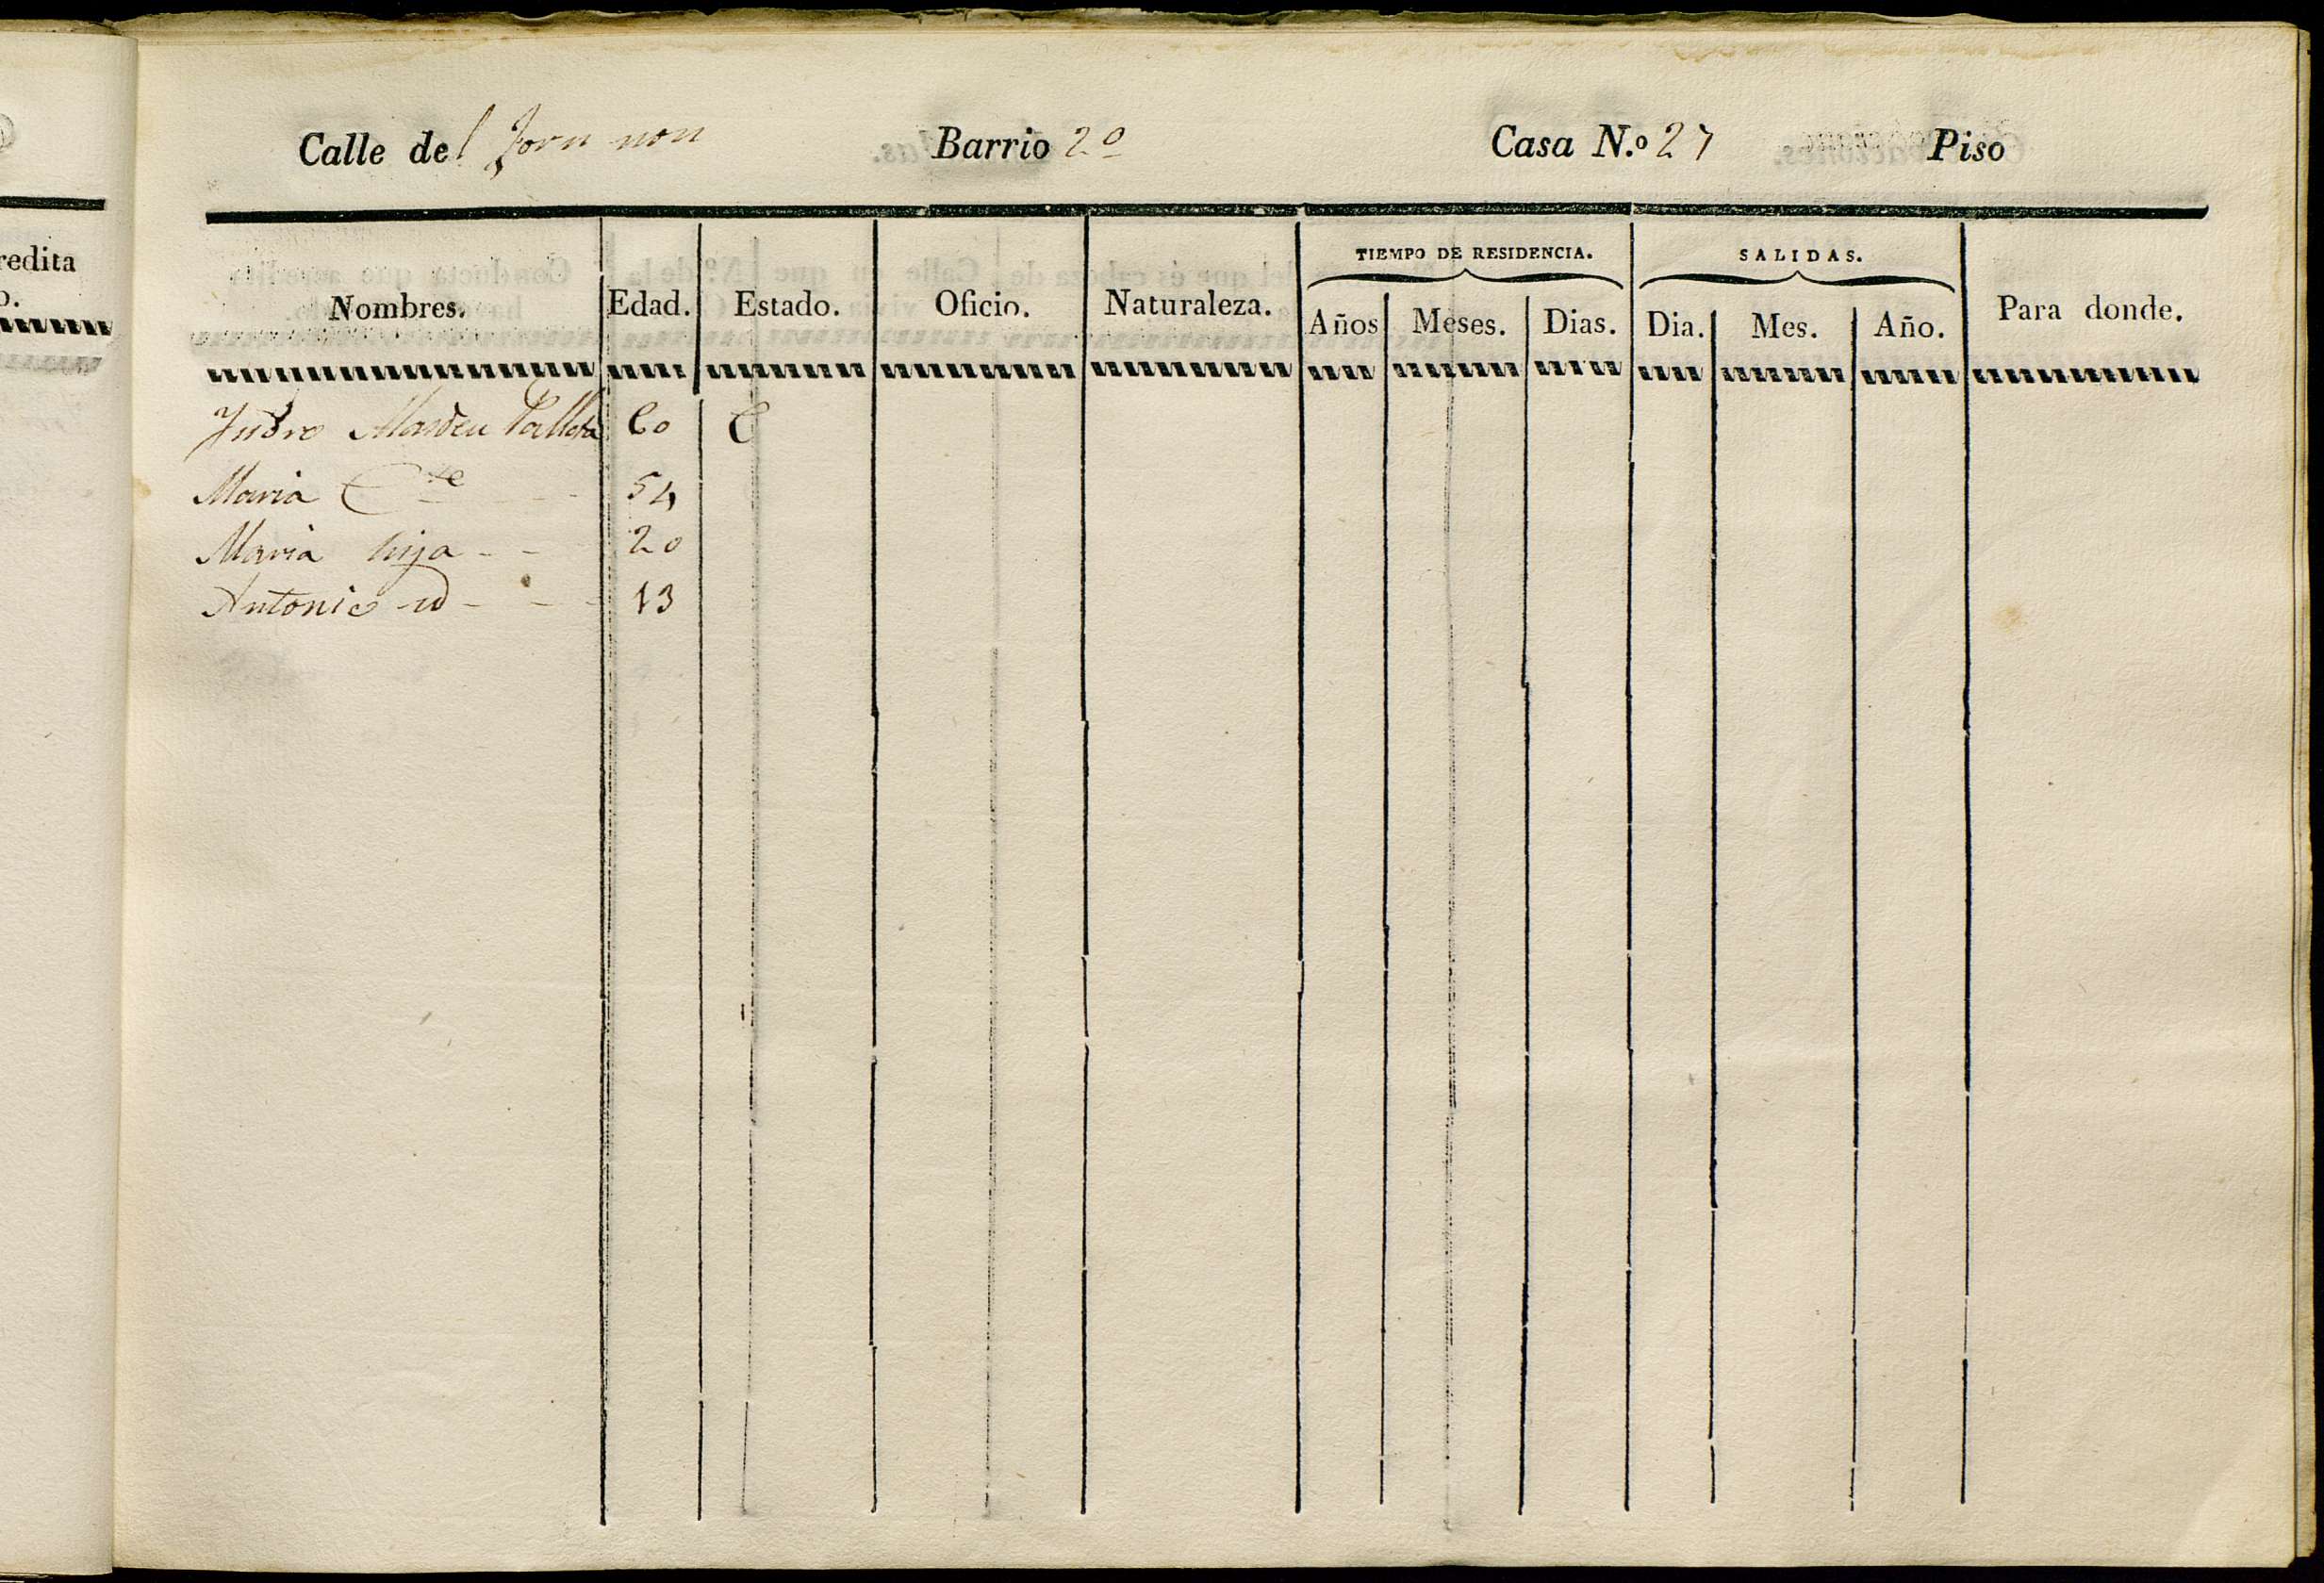 redita
o.
Calle del forn nou Barrio 2º Casa N.º 27 Piso
TIEMPO DE RESIDENCIA. SALIDAS.
Nombres. Edad. Estado. Oficio. Naturaleza. Años Meses. Dias. Dia. Mes. Año. Para donde.
Isidro 60 C
Maria Cte - - 54
Maria hija - - 20
Antonio id - - - 13